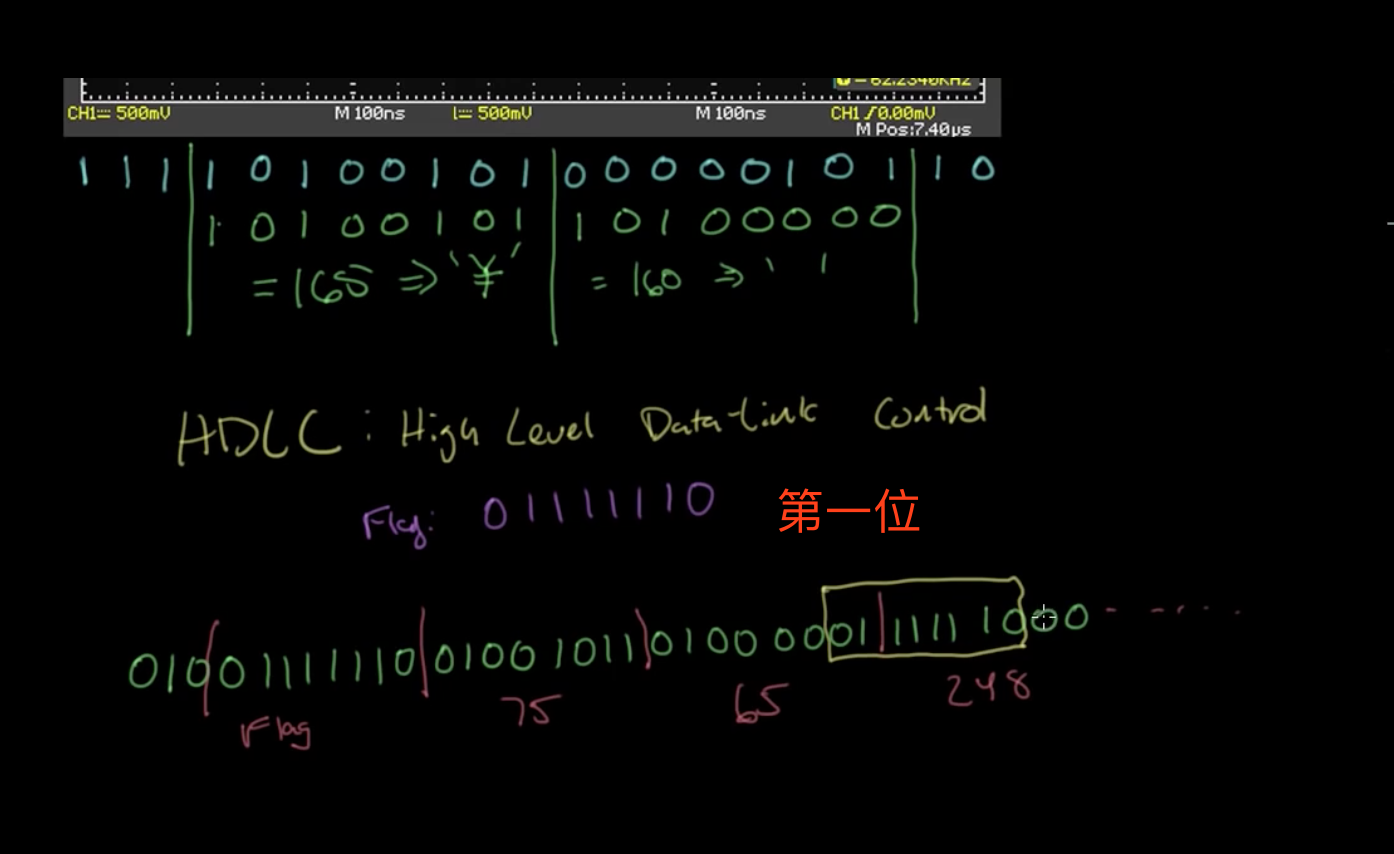 62.2340KHz
CH1 500mV M 100ns 500mV M 100ns CH1 /0.00mV
M Pos:7.40µs
1 1 1 | 1 0 1 0 0 1 0 1 | 0 0 0 0 0 1 0 1 | 1 0
1 0 1 0 0 1 0 1 | 1 0 1 0 0 0 0 0
= 165 ⇒ '¥' | = 160 ⇒ ' '
HDLC: High Level Data-Link Control
Flag: 01111110 第一位
010|01111110|01001011|01000001|11111000 - - - · · ·
Flag 75 65 248